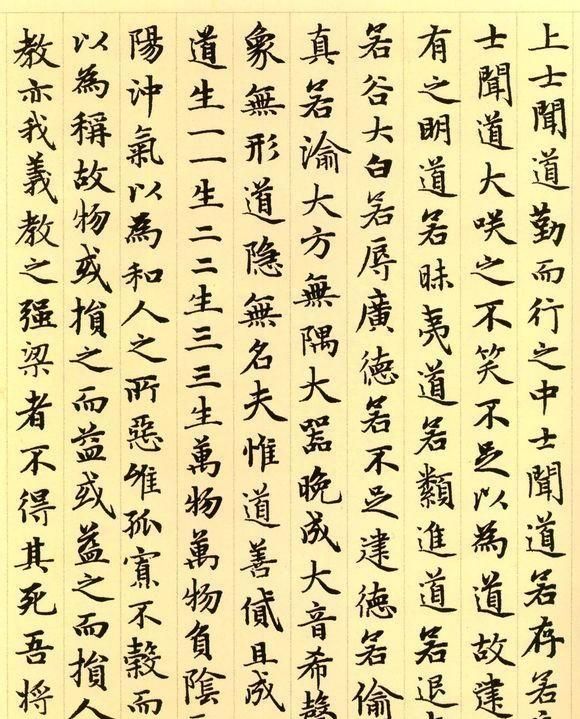 上士聞道勤而行之中士聞道若存若
士聞道大咲之不笑不足以為道故建
有之明道若昧夷道若纇進道若退
若谷大白若辱廣德若不足建德若偷
真若渝大方無隅大器晚成大音希聲
象無形道隱無名夫惟道善貸且成
道生一一生二二生三三生萬物萬物負陰
陽沖氣以為和人之所惡唯孤寡不穀而
以為稱故物或損之而益或益之而損人
教亦我義教之強梁者不得其死吾將